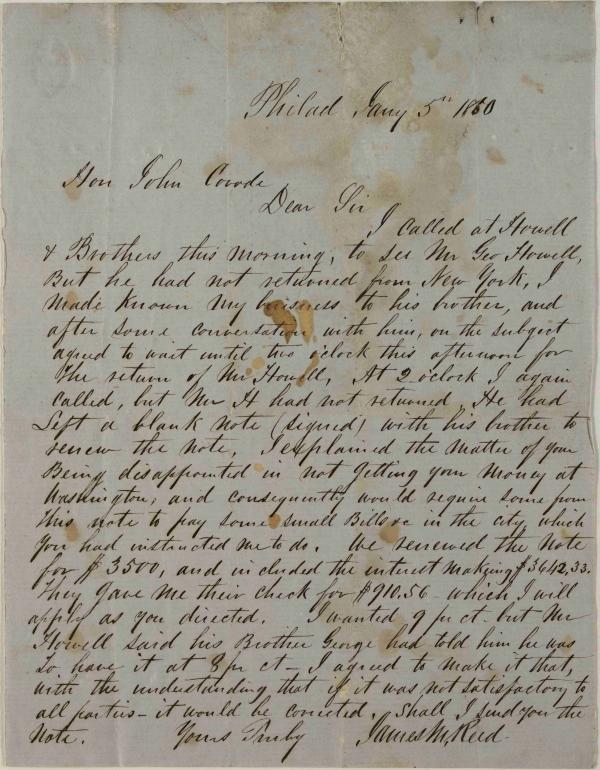 Philad Jany 5th 1860
Hon John Covode
Dear Sir
I called at Howell
& Brothers this morning, to see Mr Geo Howell,
But he had not returned from New York, I
made Known my buisness to his brother, and
after some conversation with him, on the subject
agreed to wait until two oclock this afternoon for
the return of Mr Howell, At 2 oclock I again
called, but Mr H had not returned, He had
Left a blank note (signed) with his brother to
renew the note, I explained the matter of your
Being disappointed in not getting your money at
Washington, and consequently would require some from
this note to pay some small Bills &c in the city, which
You had instructed me to do. We renewed the Note
for $3500, and included the interest making $3642,33.
They gave me their check for $910.56 - which I will
apply as you directed. I wanted 9 pr ct - but Mr
Howell said his Brother George had told him he was
to have it at 8 pr ct - I agreed to make it that,
with the understanding that if it was not satisfactory to
all parties - it would be corrected, Shall I send you the
Note. Yours Truly James M, Reed -